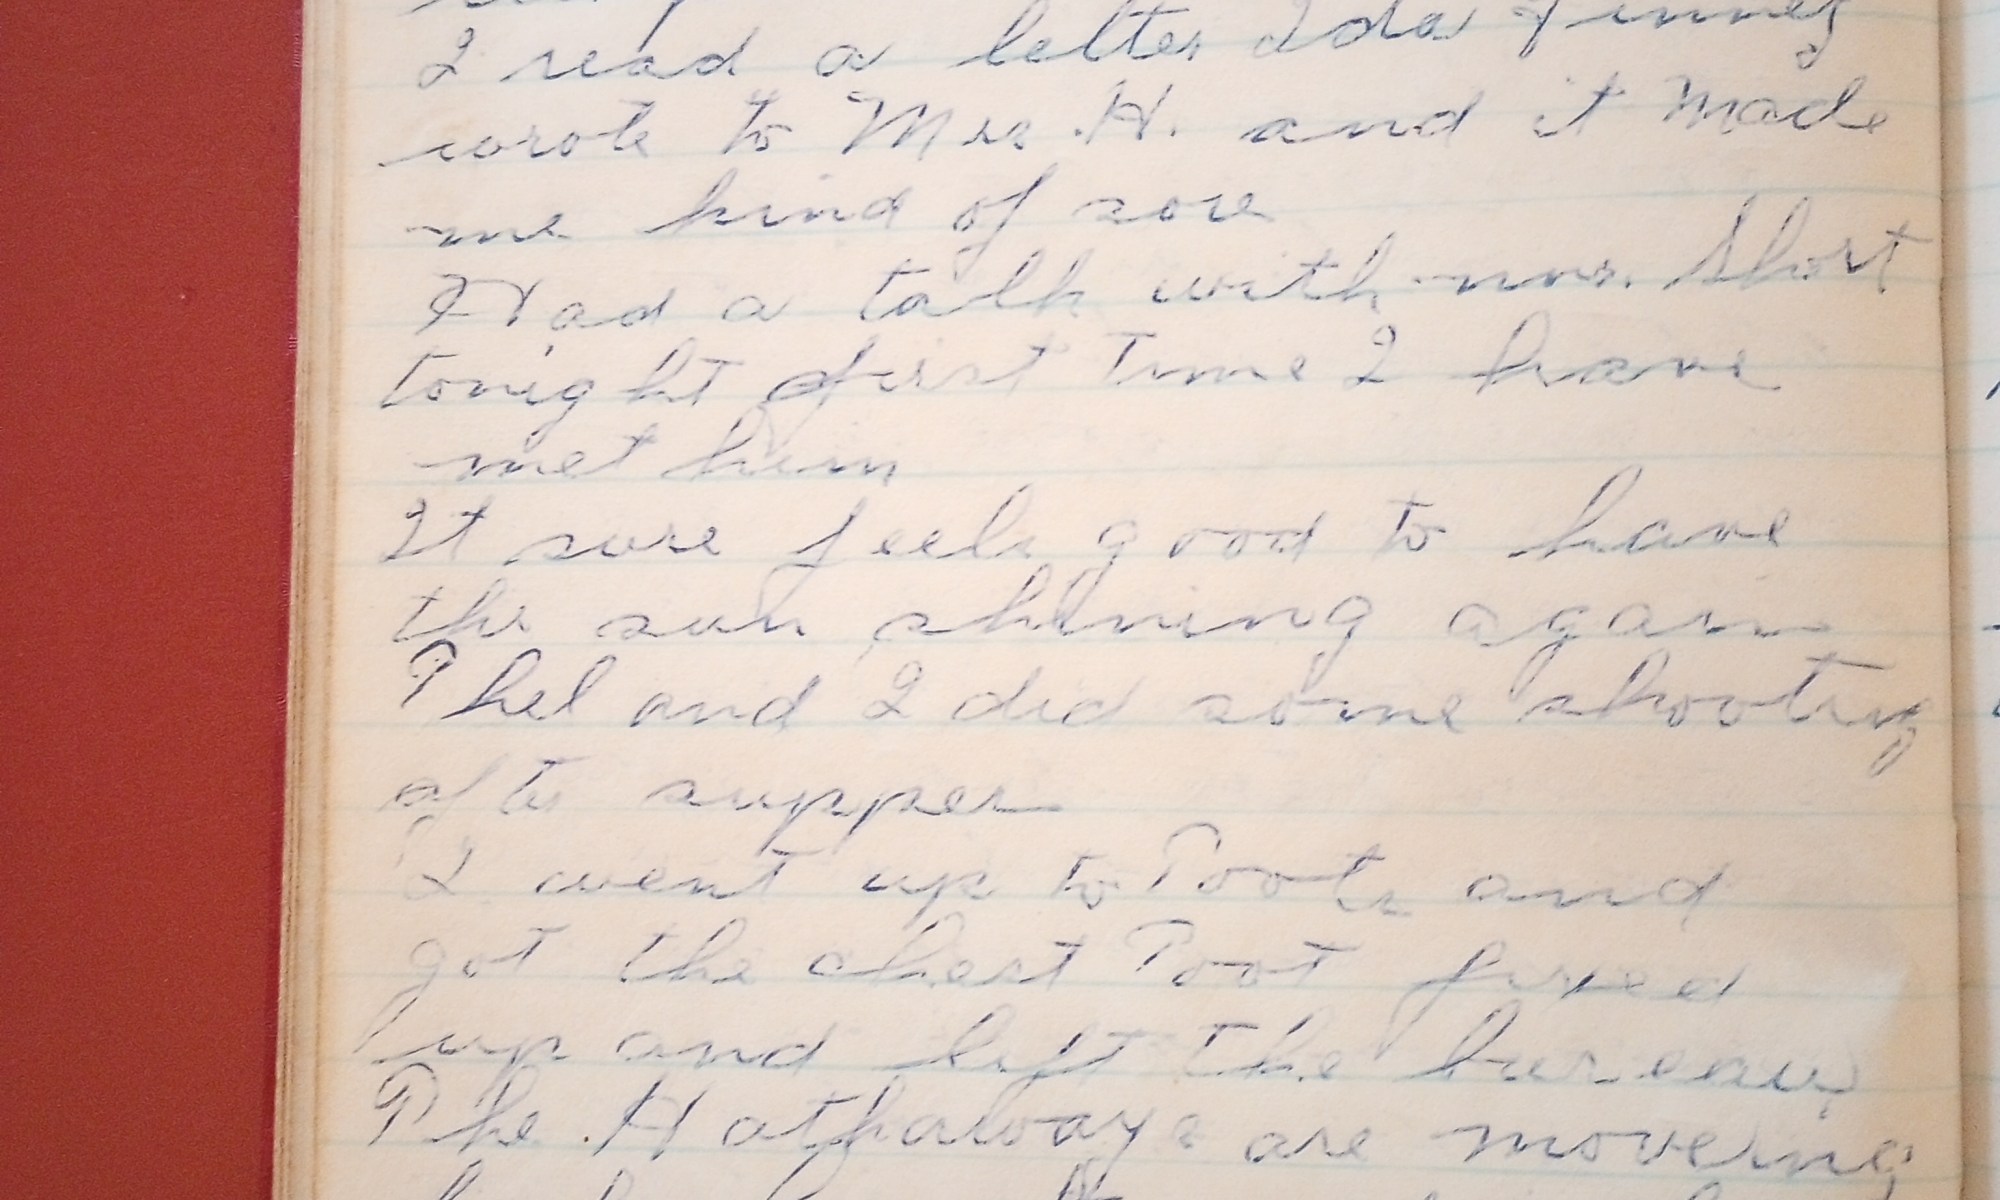 I read a letter Ida Finney
wrote to Mrs. H. and it made
me kind of sore
Had a talk with mrs. Short
tonight first time I have
met him
It sure feels good to have
the sun shining again
Thel and I did some shooting
after supper
I went up to Poots and
got the chest Poot fixed
up and left the bureau
The Hathaways are moveing